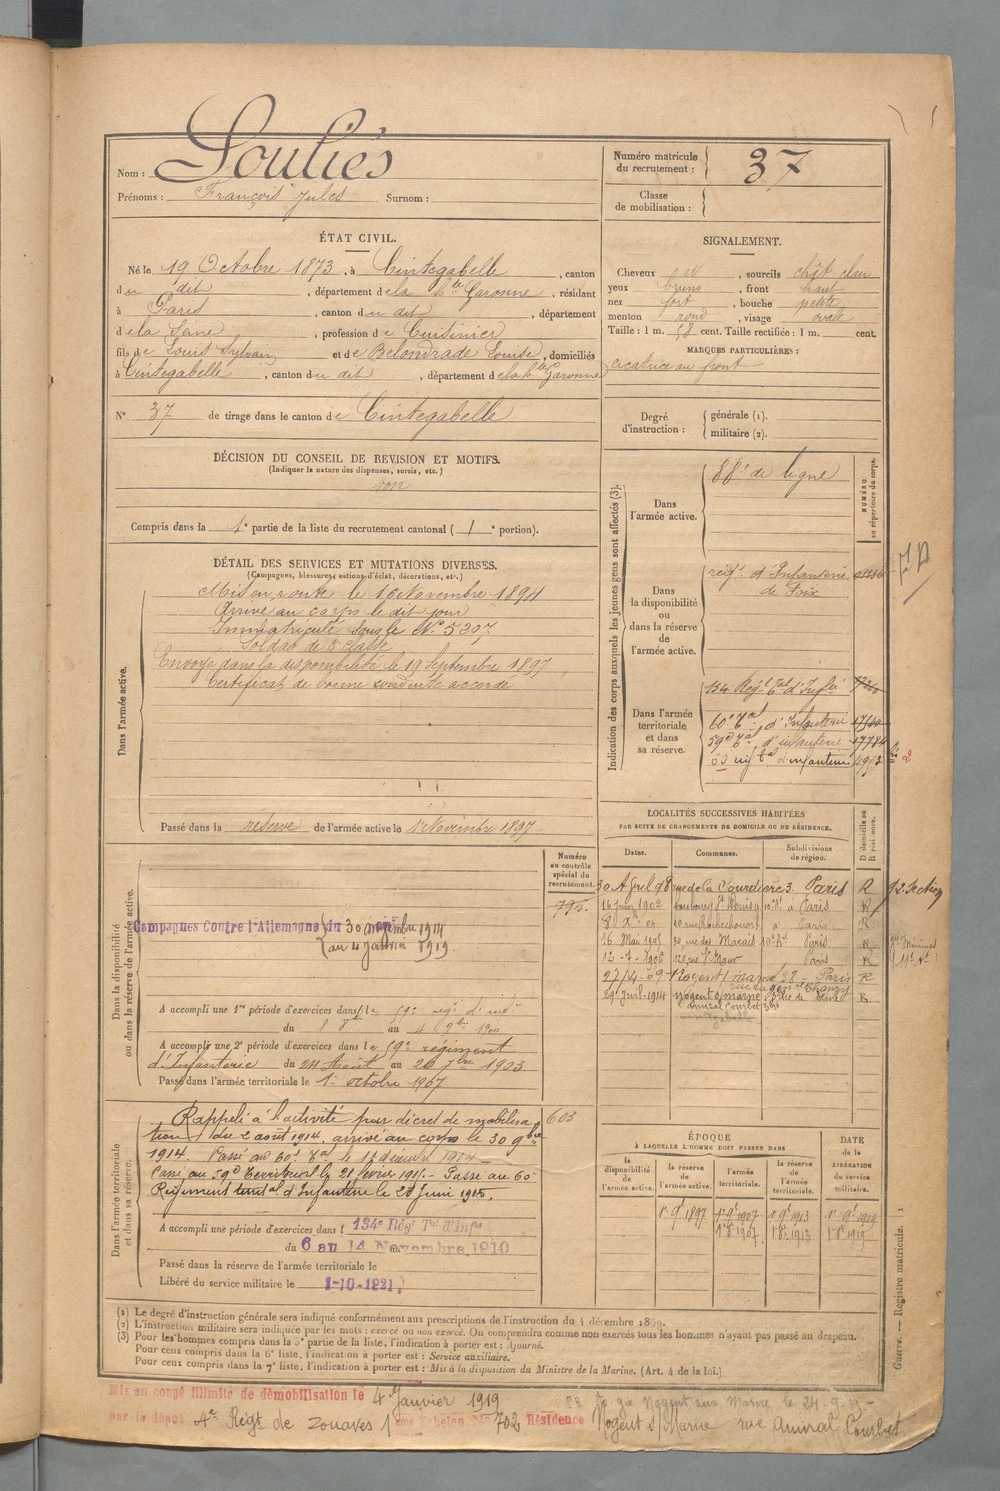 Nom : Souliés
Prénoms : François Jules Surnom :
Numéro matricule du recrutement : 37
Classe de mobilisation :
ÉTAT CIVIL.
Né le 19 Octobre 1873, à Cintegabelle, canton
du dit, département de la Hte Garonne, résidant
à Paris, canton du dit, département
de la Seine, profession de Cuisinier
fils de Louis Sylvain et de Belondrade Louise, domiciliés
à Cintegabelle, canton du dit, département de la Hte Garonne
N° 37 de tirage dans le canton de Cintegabelle
SIGNALEMENT.
Cheveux , sourcils chât clair
yeux bruns, front haut
nez fort, bouche petite
menton rond, visage ovale
Taille : 1 m. 58 cent. Taille rectifiée : 1 m. cent.
MARQUES PARTICULIÈRES :
cicatrice au front
Degré d'instruction : générale (1).
militaire (2).
DÉCISION DU CONSEIL DE REVISION ET MOTIFS.
(Indiquer la nature des dispenses, sursis, etc.)
bon
Compris dans la 1e partie de la liste du recrutement cantonal (1e portion).
DÉTAIL DES SERVICES ET MUTATIONS DIVERSES.
(Campagnes, blessures, actions d'éclat, décorations, etc.)
Dans l'armée active.
Mis en route le 16 Novembre 1894
Arrivé au corps le dit jour
Immatriculé sous le N° 5207
Soldat de 2e classe
Envoyé dans la disponibilité le 19 Septembre 1897,
Certificat de bonne conduite accordé
Passé dans la réserve de l'armée active le 1er Novembre 1897.
Indication des corps auxquels les jeunes gens sont affectés (3).
NUMÉRO au répertoire du corps.
Dans l'armée active.
88e de ligne
Dans la disponibilité ou dans la réserve de l'armée active.
régt d'Infanterie
de Foix
Dans l'armée territoriale et dans sa réserve.
134 Régt Tal d'Infie
60e Tal d'Infanterie
59e Tal d'infanterie 17784
60 régt Tal d'infanterie
LOCALITÉS SUCCESSIVES HABITÉES
PAR SUITE DE CHANGEMENTS DE DOMICILE OU DE RÉSIDENCE.
D domicile ou R résidence.
Dates. Communes. Subdivisions de région.
30 April 98 rue de la Sourdière 3. Paris R 92 Section
16 Juin 1902 faubourg St Denis 10e At à Paris R
8 Xe 04 rue Rochechouart à Paris R
16 Mai 1905 30, rue des Marais 10e At Paris R
12-7-1906 rue St Maur Paris R
27/4-09 Nogent s/ marne Paris R
29 Juil. 1914 Nogent s/ marne R
Amiral Courbet
Cintegabelle
Dans la disponibilité ou dans la réserve de l'armée active.
Numéro au contrôle spécial du recrutement.
795
Campagnes Contre l'Allemagne du 30 novembre 1914
au 4 Janvier 1919
A accompli une 1re période d'exercices dans le 59e régt d'inf
du 8 8bre au 4 9bre 1900
A accompli une 2e période d'exercices dans le 59e régiment
d'Infanterie du 24 Août au 20 7bre 1903
Passé dans l'armée territoriale le 1er octobre 1907
Dans l'armée territoriale et dans sa réserve.
605
Rappelé à l'activité par décret de mobilisa
tion du 2 août 1914, arrivé au corps le 30 9bre
1914. Passé au 60e Tal le 11 décembre 1914
Passé au 59e Territorial le 21 février 1915. - Passé au 60e
Régiment territal d'Infanterie le 28 Juin 1915.
A accompli une période d'exercices dans l 134e Rég Tal d'Infie
du 6 au 14 Novembre 1910
Passé dans la réserve de l'armée territoriale le
Libéré du service militaire le 1-10-1921
ÉPOQUE
À LAQUELLE L'HOMME DOIT PASSER DANS
la disponibilité de l'armée active. la réserve de l'armée active. l'armée territoriale. la réserve de l'armée territoriale. DATE de la LIBÉRATION du service militaire.
1er 9e 1897 1er 9e 1907 1er 9e 1913 1er 9e 1919
1er 8e 1907 1er 8e 1913 1er 8e 1919
Guerre. — Registre matricule. 1
(1) Le degré d'instruction générale sera indiqué conformément aux prescriptions de l'instruction du 4 décembre 1889.
(2) L'instruction militaire sera indiquée par les mots : exercé ou non exercé. On comprendra comme non exercés tous les hommes n'ayant pas passé au drapeau.
(3) Pour les hommes compris dans la 5e partie de la liste, l'indication à porter est : Ajourné.
Pour ceux compris dans la 6e liste, l'indication à porter est : Service auxiliaire.
Pour ceux compris dans la 7e liste, l'indication à porter est : Mis à la disposition du Ministre de la Marine. (Art. 4 de la loi.)
Mis en congé illimité de démobilisation le 4 Janvier 1919
par le dépôt 4e Régt de Zouaves Echelon No 702 Résidence Nogent s/ Marne rue Amiral Courbet
Nogent sur Marne le 24-9-19